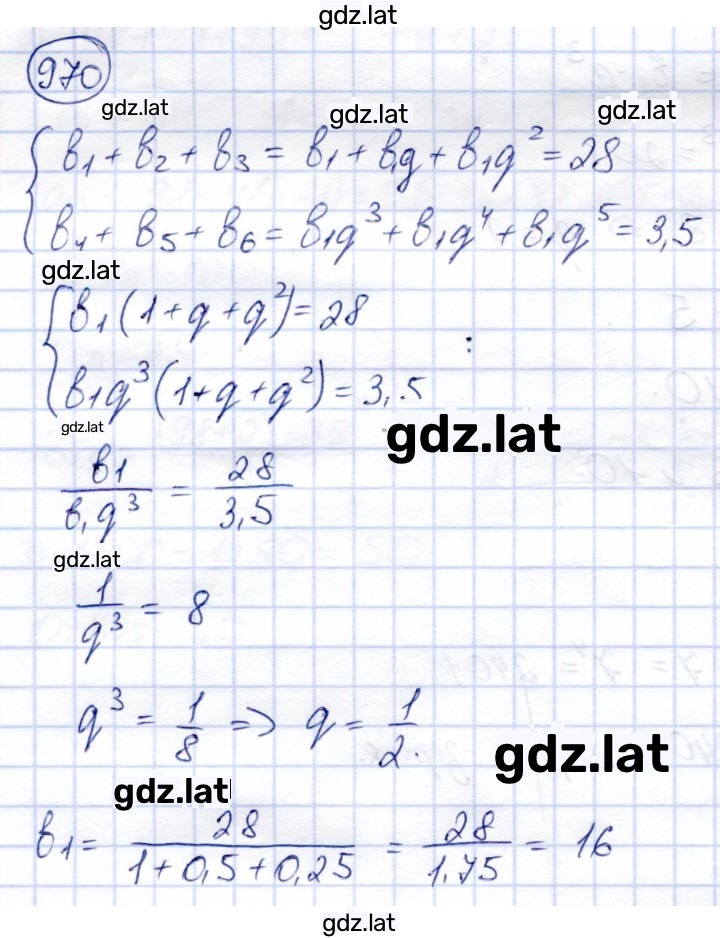 gdz.lat
970
gdz.lat gdz.lat gdz.lat
{ b₁ + b₂ + b₃ = b₁ + b₁q + b₁q² = 28
b₄ + b₅ + b₆ = b₁q³ + b₁q⁴ + b₁q⁵ = 3,5
gdz.lat
{ b₁(1 + q + q²) = 28
:
b₁q³(1 + q + q²) = 3,5
gdz.lat gdz.lat
b₁/b₁q³ = 28/3,5
gdz.lat
1/q³ = 8
q³ = 1/8 => q = 1/2.
gdz.lat
gdz.lat
b₁ = 28/(1 + 0,5 + 0,25) = 28/1,75 = 16
gdz.lat